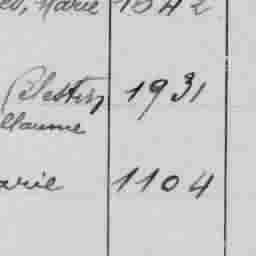 Marie 1842
Célestin 1931
llaume
arie 1104